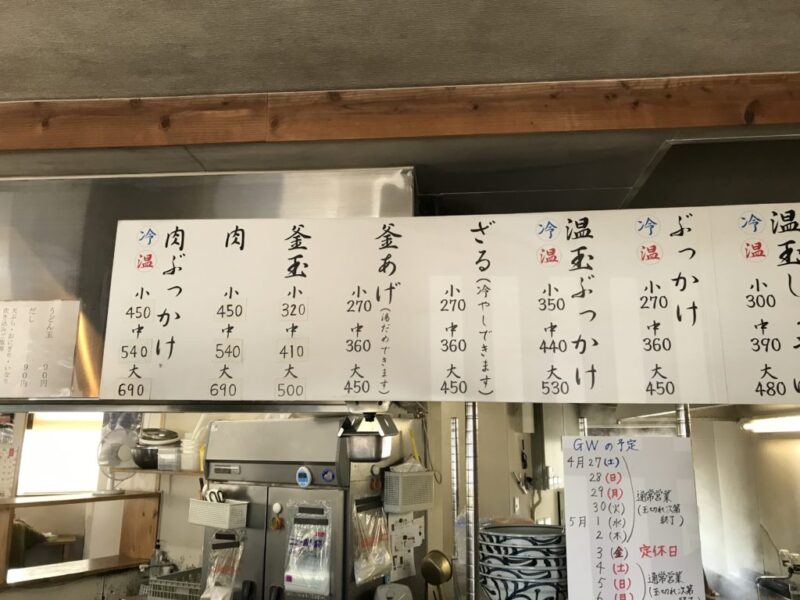 温玉し
冷 温
小 300
中 390
大 480
ぶっかけ
冷 温
小 270
中 360
大 450
温玉ぶっかけ
冷 温
小 350
中 440
大 530
ざる(冷やしできます)
小 270
中 360
大 450
釜あげ(湯だめできます)
小 270
中 360
大 450
釜玉
小 320
中 410
大 500
肉
小 450
中 540
大 690
肉ぶっかけ
冷 温
小 450
中 540
大 690
うどん玉 90円
だし 90円
GWの予定
4月27(土)
28(日)
29(月)
30(火)
5月 1(水)
2(木)
通常営業
(玉切れ次第
終了)
3(金) 定休日
4(土)
5(日)
6(月)
通常営業
(玉切れ次第